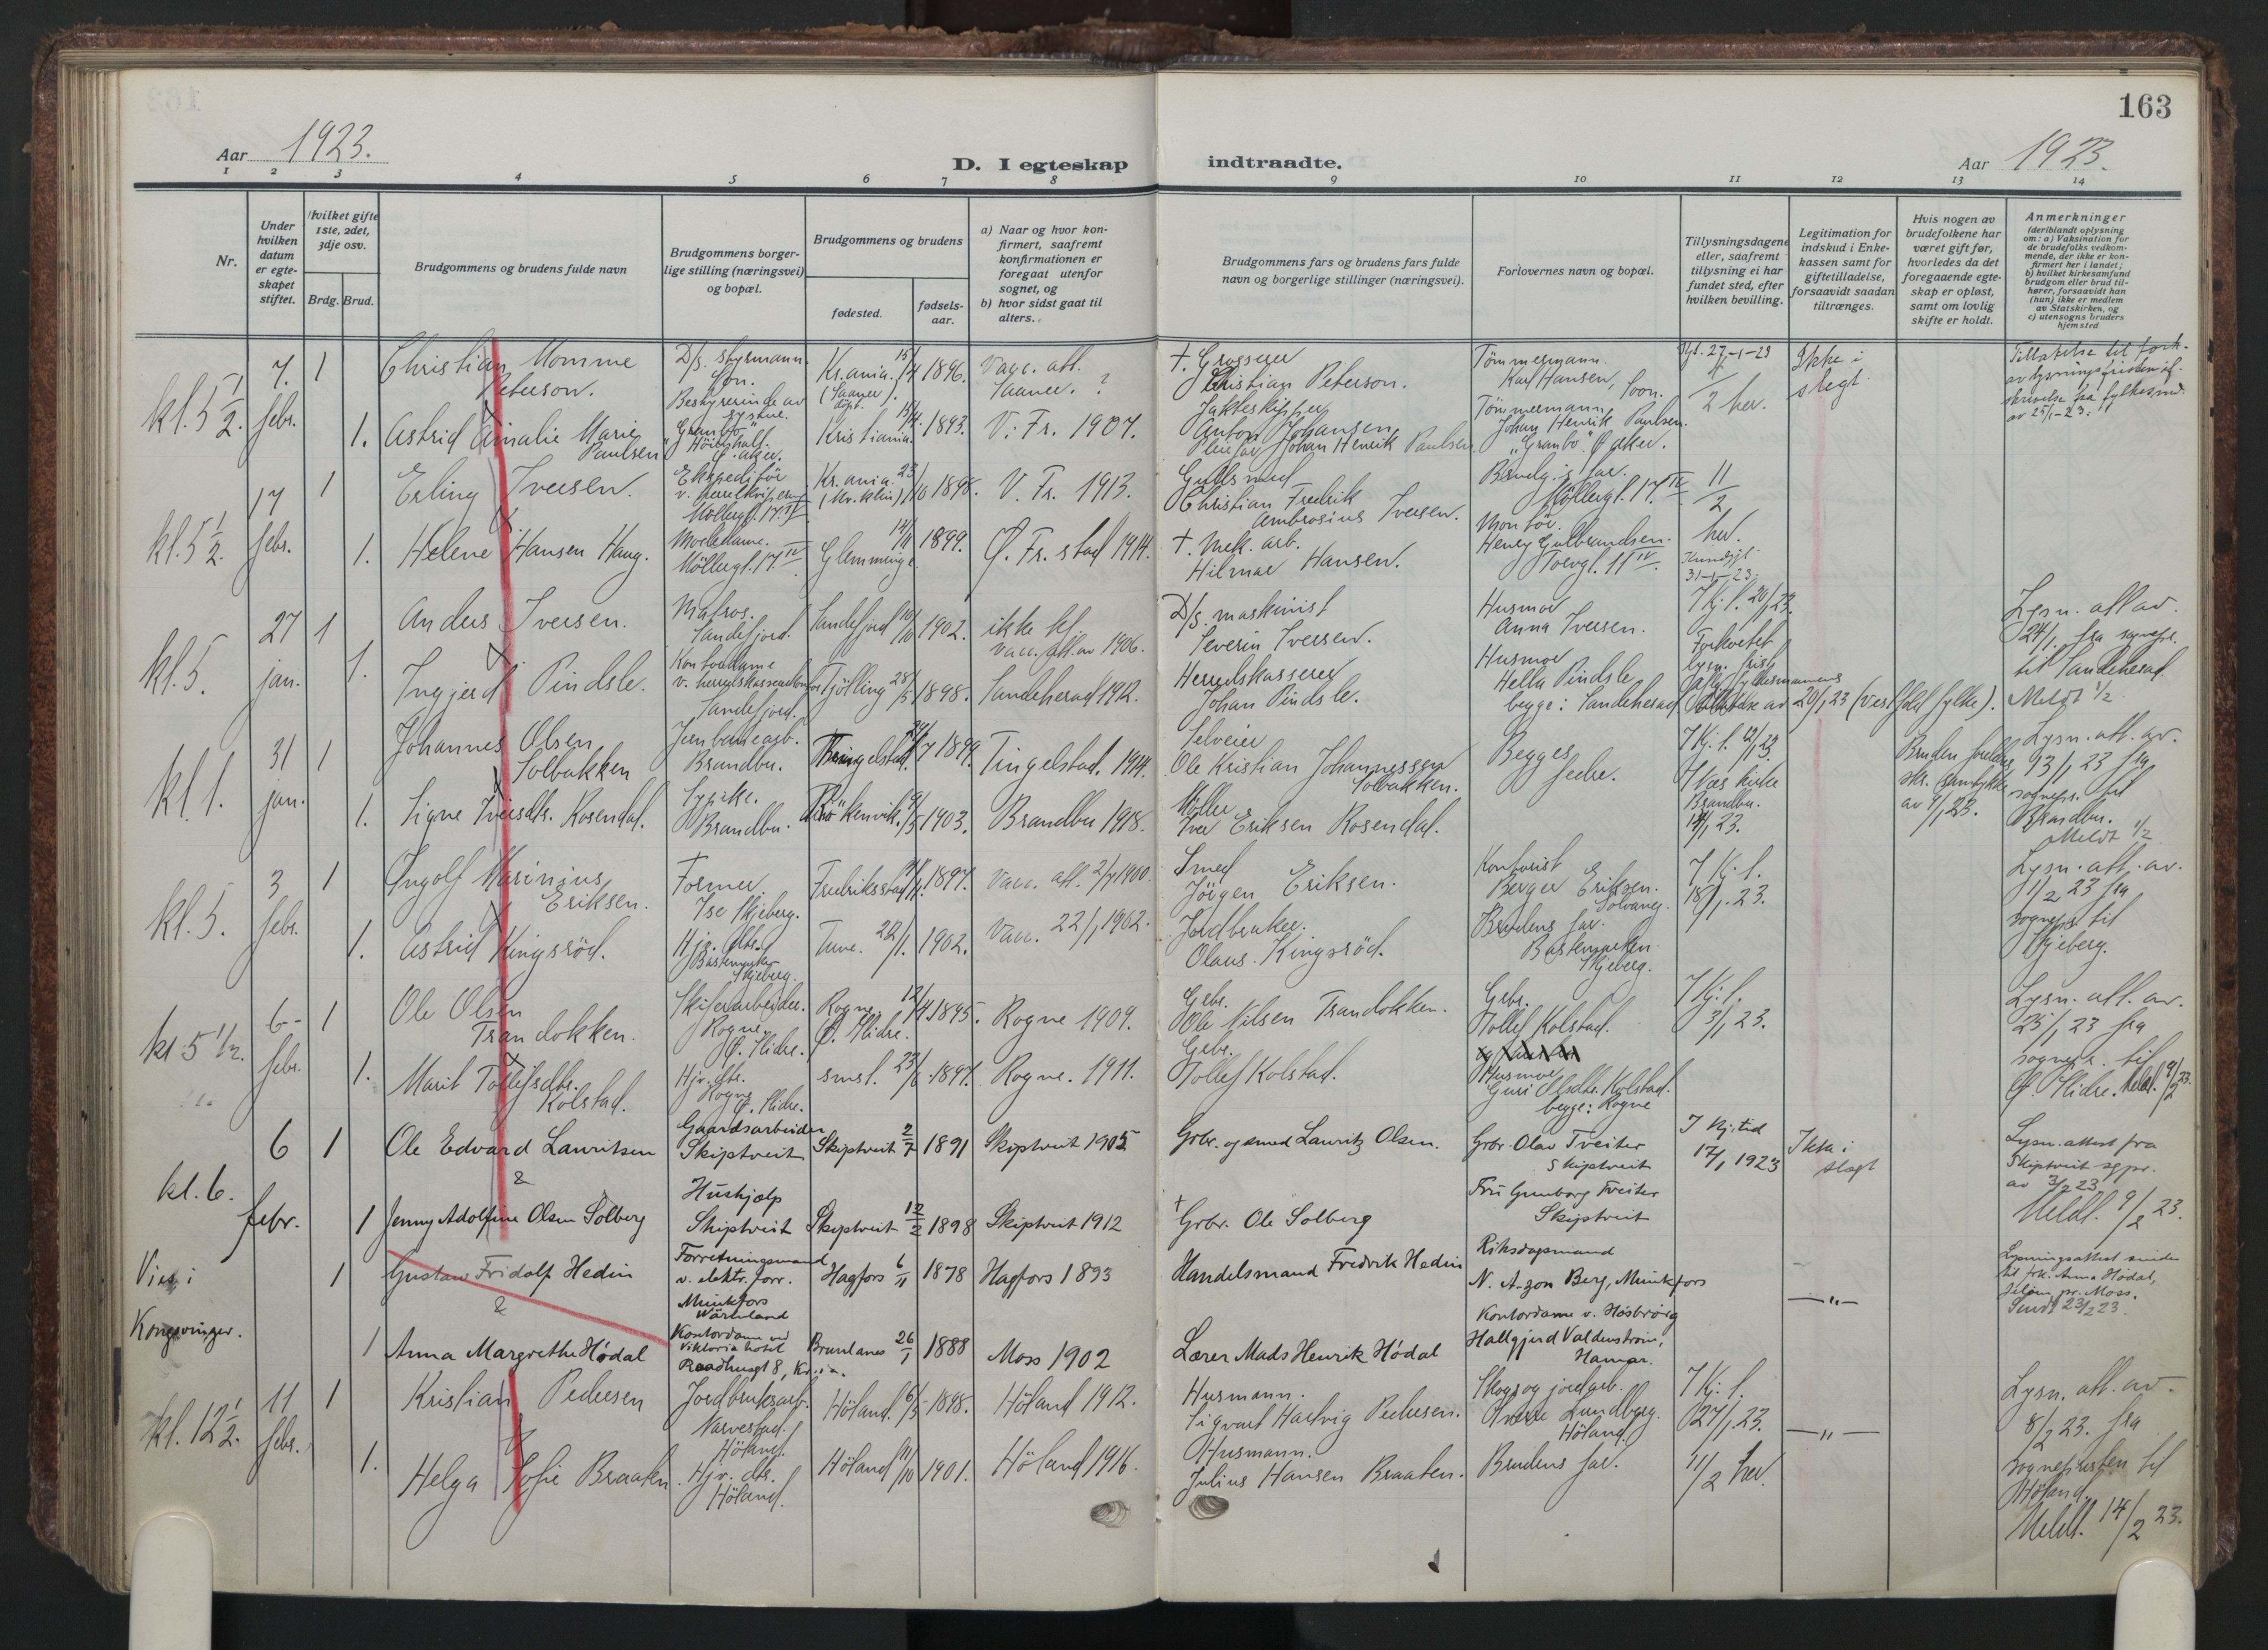 163
Aar 1923.
D. I egteskap indtraadte.
Aar 1923.
1 2 3 4 5 6 7 8 9 10 11 12 13 14
Nr.
Under hvilken datum er egteskapet stiftet.
Hvilket gifte 1ste, 2det, 3dje osv.
Brdg. Brud.
Brudgommens og brudens fulde navn
Brudgommens borgerlige stilling (næringsvei) og bopæl.
Brudgommens og brudens
fødested.
fødselsaar.
a) Naar og hvor konfirmert, saafremt konfirmationen er foregaat utenfor sognet, og
b) hvor sidst gaat til alters.
Brudgommens fars og brudens fars fulde navn og borgerlige stillinger (næringsvei).
Forlovernes navn og bopæl.
Tillysningsdagene eller, saafremt tillysning ei har fundet sted, efter hvilken bevilling.
Legitimation for indskud i Enkekassen samt for giftetilladelse, forsaavidt saadan tiltrænges.
Hvis nogen av brudefolkene har været gift før, hvorledes da det foregaaende egteskap er opløst, samt om lovlig skifte er holdt.
Anmerkninger
(deriblandt oplysning om: a) Vaksination for de brudefolks vedkommende, der ikke er konfirmert her i landet;
b) hvilket kirkesamfund brudgom eller brud tilhører, forsaavidt han (hun) ikke er medlem av Statskirken, og
c) utensogns bruders hjemsted
kl. 5 1/2. 7. febr. 1 Christian Momme Peterson. D/s. styrmann. Son. Kr.ania. (Saaner døpt.) 15/4 1896. Vacc. att. Saaner. ? + Grosserer Christian Peterson. Tømmermann. Karl Hansen, Soon. 27-1-23 Ikke i slegt.
2 her.
1. Astrid Amalie Marie Paulsen Bestyrerinde av systue. "Granbo" Ø. Aker. Kristiania. 1893. V. Fr. 1907. Jakteskipper Anton Johansen Pleiefar Johan Henrik Paulsen Tømmermann Johan Henrik Paulsen. "Granbo". Ø. Aker.
av 25/1-23.
kl. 5 1/2. 17 febr. 1 Erling Iversen. Ekspeditør v. Møllergt. 17 IV Kr.ania. 23/10 1898. V. Fr. 1913. Gullsmed Christian Fredrik Ambrosius Iversen. Brudg.s far. Møllergt. 17 IV 11/2 her.
1. Helene Hansen Haug. Modedame. Møllergt. 17 IV Glemminge 14/11 1899. Ø. Fr.stad 1914. + Mek. arb. Hilmar Hansen. Montør. Henry Gulbrandsen. Torvgt. 11 IV.
31-1-23.
kl. 5. 27 jan. 1 Anders Iversen. Matros. Sandefjord. Sandefjord 10/10 1902. ikke kf. vacc. att. av 1906. D/s. maskinist Severin Iversen. Husmor Anna Iversen. I kj. l. 20/1 23. Lysn. att av. 24/1 fra sognepr. til Sandeherad.
1. Ingjerd Pindsle. Kontordame v. herredskassererkontor Sandefjord. Tjølling 28/5 1898. Sandeherad 1912. Herredskasserer Johan Pindsle. Husmor Hella Pindsle begge: Sandeherad Forkortet lysn. frist ifølge fylkesmannens tillatelse av 20/1 23 (Vestfold fylke). Meldt 1/2
kl. 1. 31 jan. 1 Johannes Olsen Solbakken Jernbanearb. Brandbu. Tingelstad. 1899. Tingelstad. 1914. Selveier Ole Kristian Johannessen Solbakken. Begges fedre. I kj. l. Næs kirke Brandbu. Bruden foreldres skr. samtykke av 9/1 23. Lysn. att. av. 93/1 23 fra sognepr. til Brandbu. Meldt 1/2
1. Signe Iversdtr. Rosendal. Sypike. Brandbu. Røkenvik. 9/5 1903. Brandbu 1918. Møller Iver Eriksen Rosendal.
kl. 5. 3 febr. 1 Ingolf Marinius Eriksen. Former. Ise Skjeberg. Fredriksstad 1897. Vacc. att. 2/7 1900. Smed Jörgen Eriksen. Kontorist Berger Eriksen. Solvang. I kj. l. 18/1. 23. Lysn. att. av. 1/2 23 fra sognepr. til Skjeberg.
1. Astrid Kingsröd. Hj.v. dtr. Skjeberg. Tune. 22/1. 1902. Vacc. 22/1 1902. Jordbruker Olaus Kingsröd. Brudens far. Skjeberg.
kl. 5 1/2. 6- febr. 1 Ole Olsen Trandokken. Skiferarbeider. Rogne. Ø. Slidre. Rogne. Ø. Slidre. 12/4 1895. Rogne 1909. Gbr. Ole Nilsen Trandokken. Gbr. Tollef Kolstad. I kj. l. 3/1 23. Lysn. att. av. 25/1 23 fra sognepr. til Ø. Slidre. Meldt. 9/2 23.
1. Marit Tollefsdtr. Kolstad. Hjv. dtr. Rogne Ø. Slidre. smst. 23/6 1897. Rogne. 1911. Gbr. Tollef Kolstad. Husmor Guri Olsdtr. Kolstad. begge: Rogne
kl. 6. 6 febr. 1 Ole Edvard Lauritsen & Gaardsarbeider Skiptveit Skiptveit 2/7 1891 Skiptveit 1905 Grbr. og smed Lauritz Olsen. Grbr. Olav Tveiter Skiptveit I kj. tid 17/1 1923 Ikke i slegt Lysn. attest fra Skiptveit sgpr. av 3/2 23. Meldt. 9/2 23.
1 Jenny Adolfine Olsen Solberg Hushjælp Skiptveit Skiptveit 12/2 1898 Skiptveit 1912 + Grbr. Ole Solberg Fru Gunborg Tveiter Skiptveit
Viet i Kongsvinger. 1 Gustav Fridolf Hedin & Forretningsmand v. elektr. forr. Munkfors Wärmland Hagfors 6/11 1878 Hagfors 1893 Handelsmand Fredrik Hedin Riksdagsmand N. A-zon Berg, Munkfors — " — Lysningsattest sendes til frk. Anna Hødal, Jeløen pr. Moss. Sendt 23/2 23.
1 Anna Margrethe Hødal Kontordame ved Viktoria hotel Raadhusgt 8, Kr.ia. Brunlanes 26/1 1888 Moss 1902 Lærer Mads Henrik Hødal Kontordame v. Hallgjerd Valdenstrøm, Hamar.
kl. 12 1/2. 11 febr. 1 Kristian Pedersen Jordbruksarb. Narvestad. Höland. Höland. 6/5 1898. Höland 1912. Husmann. Sigvart Hartvig Pedersen. Skogs og jordarb. Sverre Lundberg. Höland. I kj. l. 27/1 23. — " — Lysn. att. av. 8/2 23. fra sognepresten til Höland. Meldt. 14/2 23.
1. Helga Sofie Braaten Hjv. dtr. Höland. Höland 11/10 1901. Höland 1916. Husmann. Julius Hansen Braaten. Brudens far. 11/2 her.